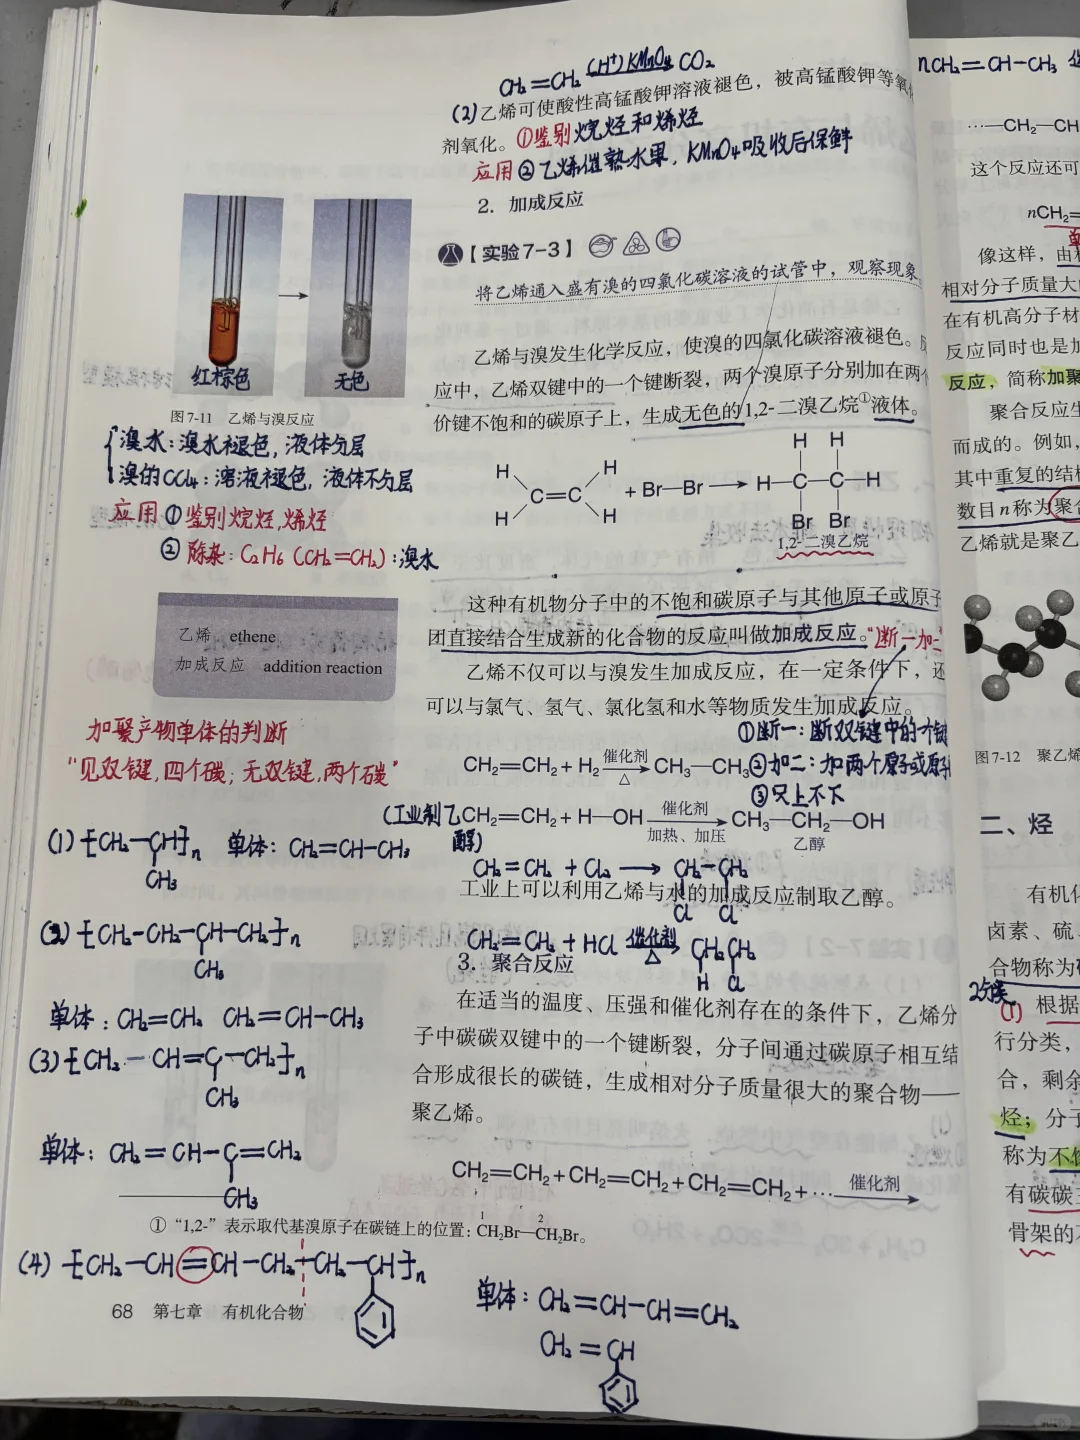 CH₂=CH₂ (H⁺)KMnO₄ CO₂
(2)乙烯可使酸性高锰酸钾溶液褪色，被高锰酸钾等氧化
剂氧化。①鉴别烷烃和烯烃
应用②乙烯催熟水果，KMnO₄吸收后保鲜
2. 加成反应
【实验7-3】
将乙烯通入盛有溴的四氯化碳溶液的试管中，观察现象
红棕色
无色
图7-11 乙烯与溴反应
乙烯与溴发生化学反应，使溴的四氯化碳溶液褪色。
应中，乙烯双键中的一个键断裂，两个溴原子分别加在两个
价键不饱和的碳原子上，生成无色的1,2-二溴乙烷①液体。
溴水：溴水褪色，液体分层
溴的CCl₄：溶液褪色，液体不分层
应用①鉴别烷烃，烯烃
②除杂：C₂H₆(CH₂=CH₂)：溴水
H H H H
H C=C H + Br—Br → H—C—C—H
H H Br Br
1,2-二溴乙烷
这种有机物分子中的不饱和碳原子与其他原子或原子
团直接结合生成新的化合物的反应叫做加成反应。"断一加二"
乙烯不仅可以与溴发生加成反应，在一定条件下，还
可以与氯气、氢气、氯化氢和水等物质发生加成反应。
乙烯 ethene
加成反应 addition reaction
①断一：断双键中的一个键
CH₂=CH₂+H₂ 催化剂 △ CH₃—CH₃ ②加二：加两个原子或原子
③只上不下
(工业制乙醇) CH₂=CH₂+H—OH 催化剂 加热、加压 CH₃—CH₂—OH
乙醇
CH₂=CH₂ + Cl₂ → CH₂-CH₂
Cl Cl
工业上可以利用乙烯与水的加成反应制取乙醇。
CH₂=CH₂+HCl 催化剂 △ CH₂CH₂
H Cl
3. 聚合反应
在适当的温度、压强和催化剂存在的条件下，乙烯分
子中碳碳双键中的一个键断裂，分子间通过碳原子相互结
合形成很长的碳链，生成相对分子质量很大的聚合物——
聚乙烯。
CH₂=CH₂+CH₂=CH₂+CH₂=CH₂+… 催化剂
加聚产物单体的判断
"见双键，四个碳；无双键，两个碳"
(1) [CH₂-CH]n 单体：CH₂=CH-CH₃
CH₃
(2) [CH₂-CH₂-CH-CH₂]n
CH₃
单体：CH₂=CH₂ CH₂=CH-CH₃
(3) [CH₂-CH=C-CH₂]n
CH₃
单体：CH₂=CH-C=CH₂
CH₃
①"1,2-"表示取代基溴原子在碳链上的位置：CH₂Br—CH₂Br。
1 2
(4) [CH₂-CH=CH-CH₂-CH₂-CH]n
单体：CH₂=CH-CH=CH₂
CH₂=CH
68 第七章 有机化合物
nCH₂=CH-CH₃
…—CH₂—CH
这个反应还可
nCH₂=
像这样，由
相对分子质量大
在有机高分子材
反应同时也是加
反应，简称加聚
聚合反应生
而成的。例如，
其中重复的结构
数目n称为聚合
乙烯就是聚乙
图7-12 聚乙烯
二、烃
有机化
卤素、硫、
合物称为
2分类
(1) 根据
行分类，
合，剩余
烃；分子
称为不饱
有碳碳
骨架的